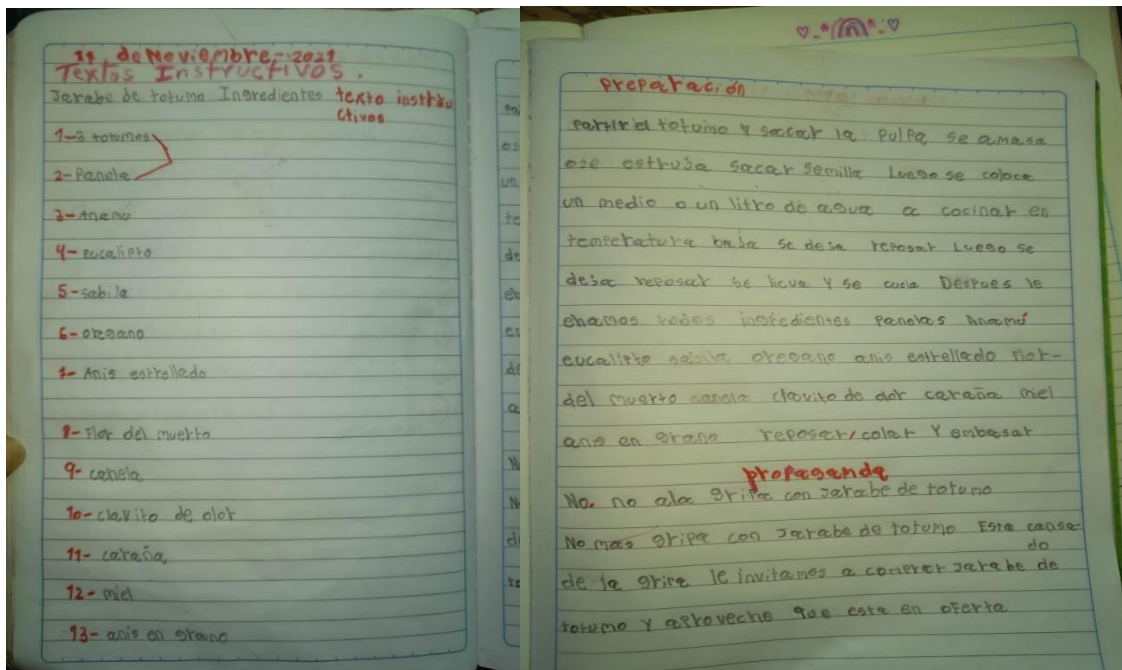 11 de Noviembre - 2021
Textos Instructivos.
Jarabe de totumo Ingredientes texto instru
ctivos
1-3 totumos
2- Panela
3- Anamu
4- Eucalipto
5- sabila
6- oregano
7- Anis estrellado
8- Flor del muerto
9- canela
10- clavito de olor
11- caraña
12- miel
13- anis en grano
preparación
partir el totumo Y saccar la pulpa se amasa
ose estruja sacar semilla Luego se coloca
un medio o un litro de agua a cocinar en
temperatura baja se deja reposar Luego se
deja reposar se licua Y se cuela Despues le
ehamos todos ingredientes Panelas Anamú
eucalipto sabila oregano anis estrellado Flor-
del muerto canela clavito de dor caraña miel
anis en grano reposar, colar Y embasar
propaganda
No. no ala gripa con Jarabe de totumo
No mas gripa con Jarabe de totumo Esta cansa-
do
de la gripa le invitamos a comprar Jarabe de
totumo Y aproveche que esta en oferta